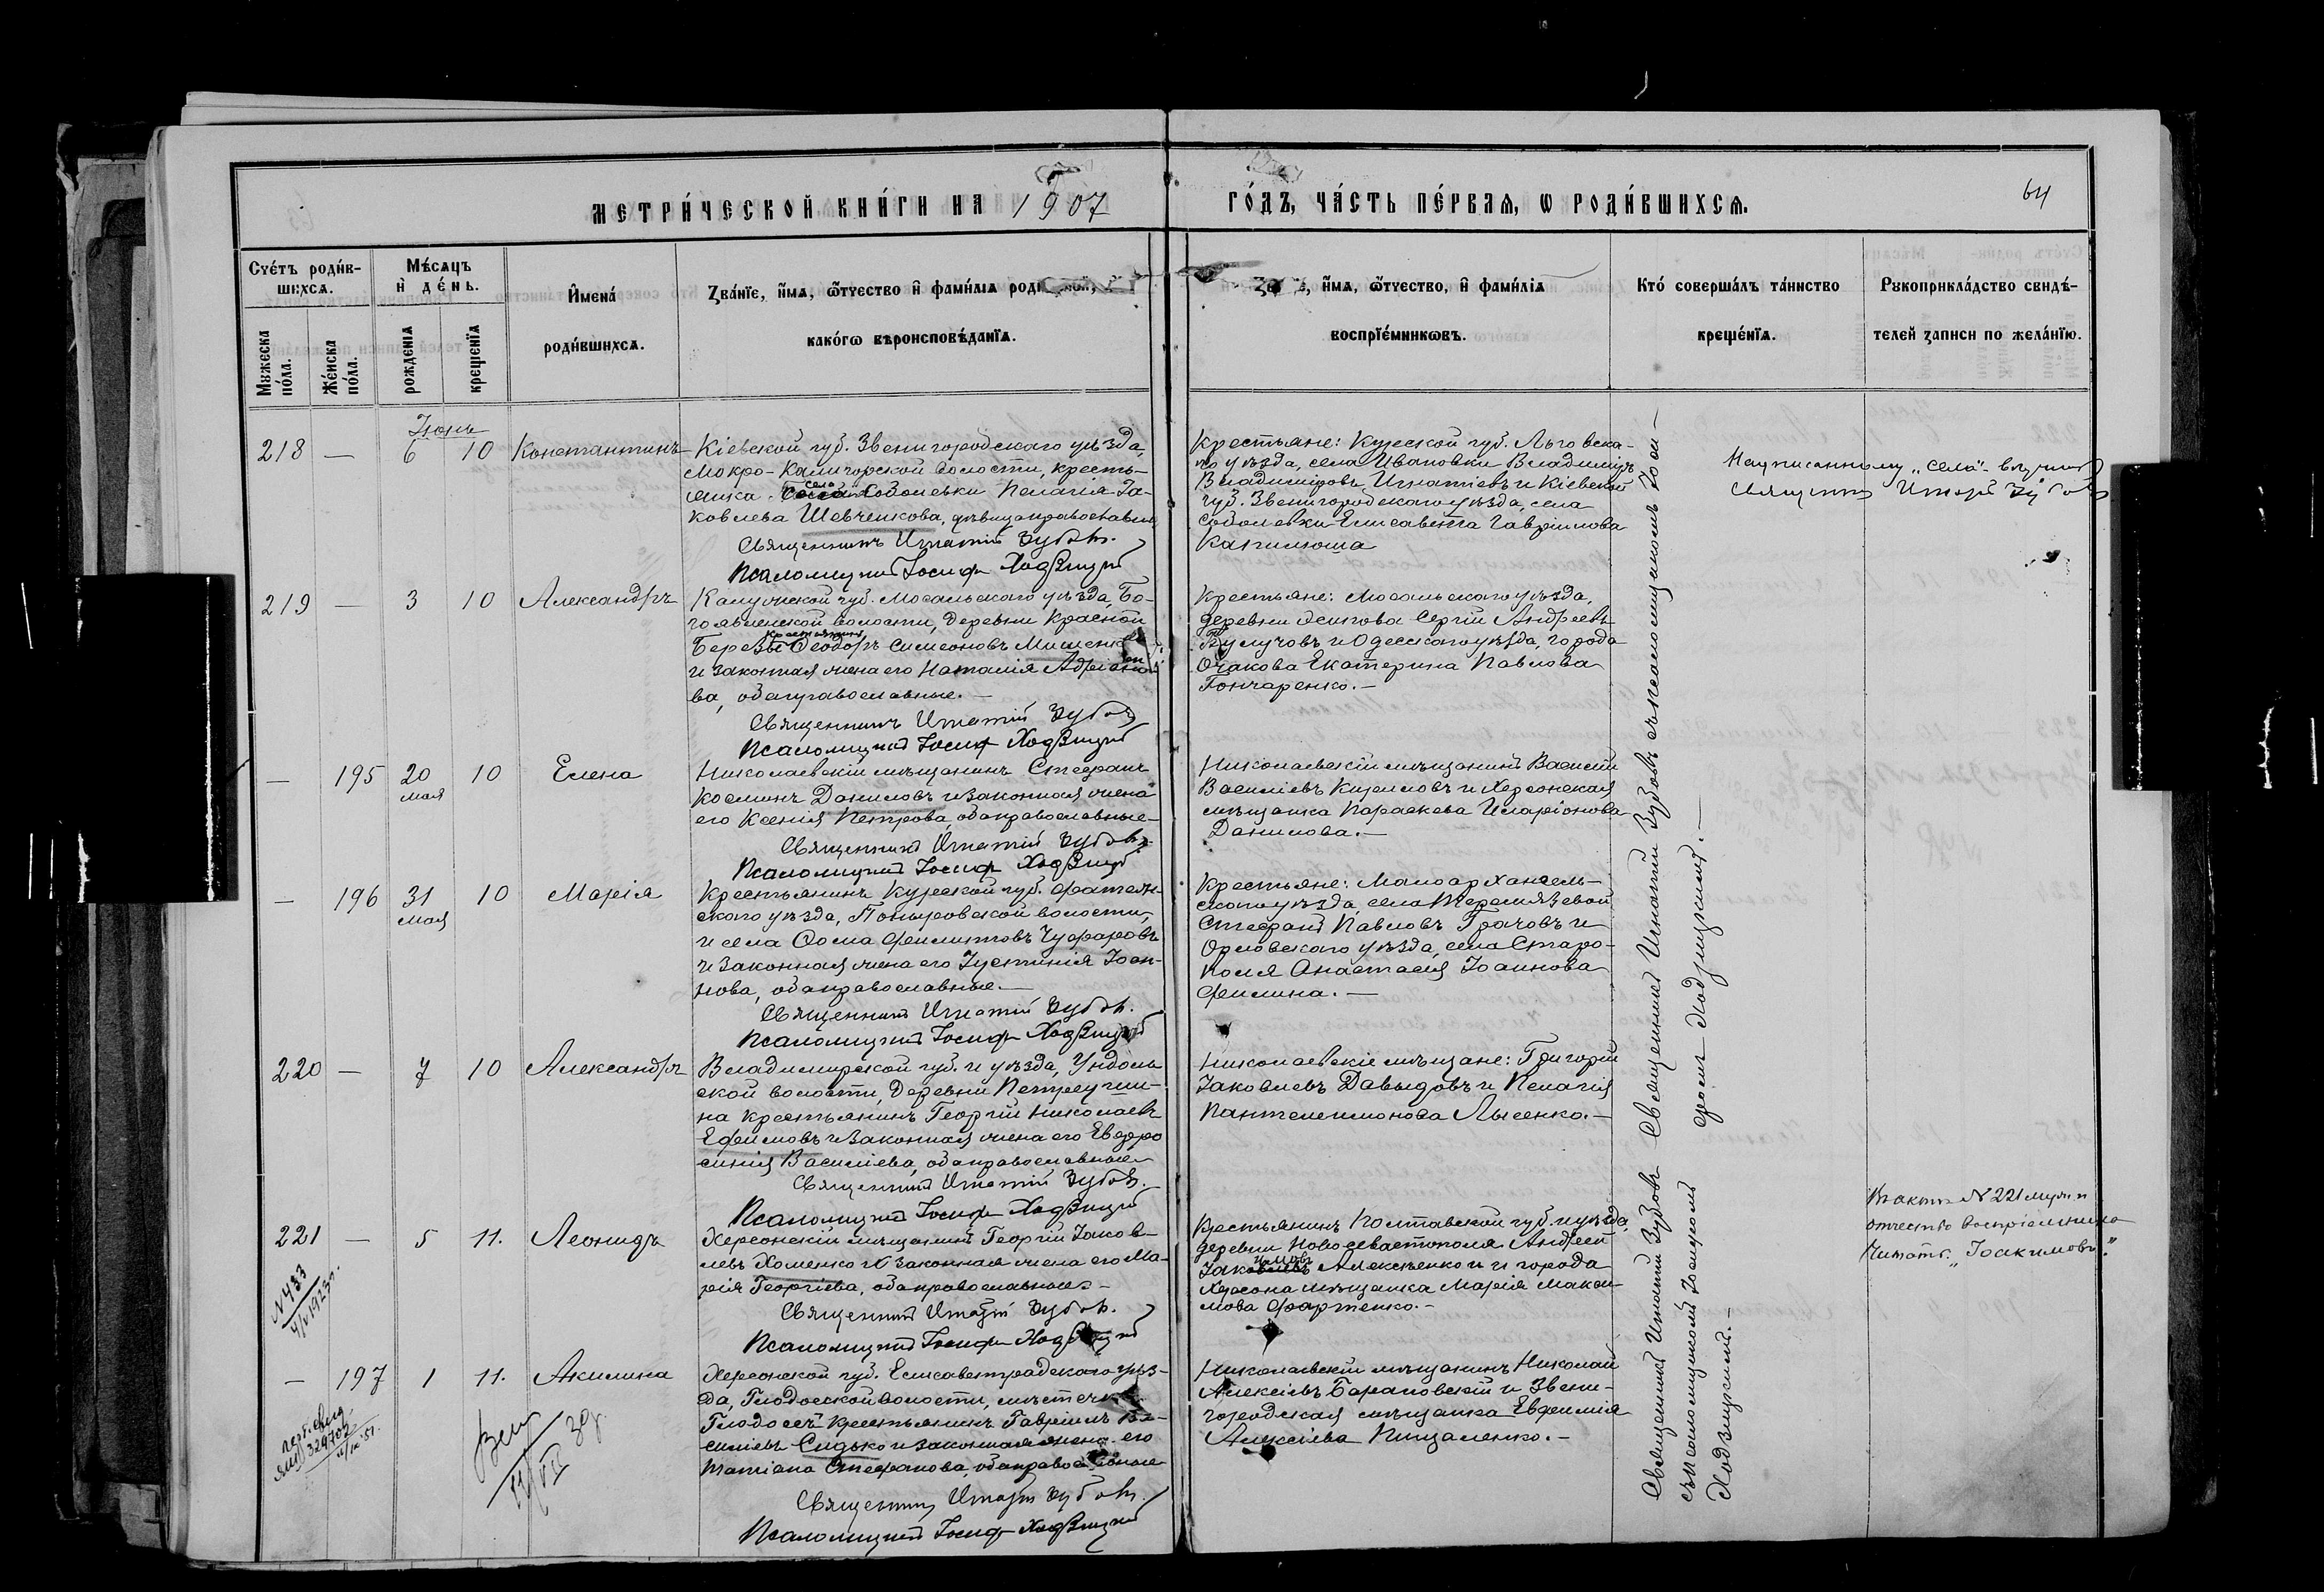 МЕТРИ́ЧЕСКОЙ КНИ́ГИ НА 1907
ГО́ДЪ, ЧА́СТЬ ПЕ́РВАЯ, Ѡ РОДИ́ВШИХСѦ.
64
Счетъ роди́в-
шихсѧ.
Мꙋжеска по́ла.
Же́нска по́ла.
Мѣ́сѧцъ
и҆ де́нь.
рожденїѧ
крещенїѧ
И҆мена́
роди́вшихсѧ.
Зва́нїе, и҆́мѧ, ѻ҆́тчество и҆ фами́лїѧ
како́гѡ вѣроисповѣ́данїѧ.
и҆́мѧ, ѻ҆́тчество, и҆ фами́лїѧ
воспрїе́мникѡвъ.
Кто́ соверша́лъ та́инство
креще́нїѧ.
Рꙋкоприкла́дство свидѣ́-
телей записи по жела́нїю.
Іюнь
218 — 6 10 Константинъ
Кіевской губ. Звенигородскаго уѣзда,
Мокро-Калигорской волости, кресть-
янка села Соболевки Пелагія Іа-
ковлева Шевченкова, дѣвица православн.
Священникъ Игнатій Зубовъ.
Псаломщикъ Іосифъ Ходзицкій
Крестьяне: Курской губ. Льговска-
го уѣзда, села Ивановки Владиміръ
Владиміровъ Игнатіевъ и Кіевской
губ. Звенигородскаго уѣзда, села
Соболевки Елисавета Гавріилова
Капилюша
Надписанному „села“ вѣрить
Священникъ Игнатій Зубовъ
219 — 3 10 Александръ
Калужской губ. Мосальскаго уѣзда, Бо-
гоявленской волости, деревни Красной
Березы крестьянинъ Ѳеодоръ Симеоновъ
и законная жена его Наталія Адріано-
ва, оба православные. —
Священникъ Игнатій Зубовъ
Псаломщикъ Іосифъ Ходзицкій
Крестьяне: Мосальскаго уѣзда,
деревни Сергій Андреевъ
и Одесскаго уѣзда, города
Очакова Екатерина Павлова
Гончаренко. —
— 195 20 мая 10 Елена
Николаевскій мѣщанинъ Стефанъ
Косминъ Даниловъ и законная жена
его Ксенія Петрова, оба православные —
Священникъ Игнатій Зубовъ.
Псаломщикъ Іосифъ Ходзицкій
Николаевскій мѣщанинъ Василій
Василіевъ Кирилловъ и Херсонская
мѣщанка Параскева Иларіонова
Данилова. —
— 196 31 мая 10 Марія
Крестьянинъ Курской губ. Фатеж-
скаго уѣзда, Поныровской волости,
и села Ѳома Филиповъ Чуфаровъ
и законная жена его Іустинія Іоан-
нова, оба православные. —
Священникъ Игнатій Зубовъ.
Псаломщикъ Іосифъ Ходзицкій
Крестьяне: Малоархангель-
скаго уѣзда, села
Стефанъ Павловъ Грачовъ и
Орловскаго уѣзда, села Старо-
поля Анастасія Іоаннова
Филина. —
220 — 7 10 Александръ
Владимирской губ. и уѣзда, Ундоль-
ской волости, деревни
крестьянинъ Георгій Николаевъ
Ефимовъ и законная жена его Евфро
синія Василіева, оба православные
Священникъ Игнатій Зубовъ.
Псаломщикъ Іосифъ Ходзицкій
Николаевскіе мѣщане: Григорій
Іаковлевъ Давыдовъ и Пелагія
Пантелеимонова Лысенко. —
221 — 5 11. Леонидъ
Херсонскій мѣщанинъ Георгій Іаков-
левъ Хоменко и законная жена его Ма-
рія Георгіева, оба православные —
Священникъ Игнатій Зубовъ.
Псаломщикъ Іосифъ Ходзицкій
Крестьянинъ Полтавской губ. и уѣзда,
деревни Новосевастополя Андрей
Іоакимовъ Алексѣенко и города
Херсона мѣщанка Марія Макси-
мова Фартенко. —
Въ актѣ № 221 муж. п
отчество воспріемника
читать: „Іоакимовъ“.
№ 433
— 197 1 11. Акилина
Херсонской губ. Елисаветградскаго уѣз-
да, Глодосской волости, мѣстечка
Глодосъ крестьянинъ Гавріилъ Ва-
силіевъ Сидько и законная жена его
Татіана Стефанова, оба православные
Священникъ Игнатій Зубовъ.
Псаломщикъ Іосифъ Ходзицкій
Николаевскій мѣщанинъ Николай
Алексіевъ Барановскій и Звени-
городская мѣщанка Евфимія
Алексіева Пищаленко. —
Священникъ Игнатій Зубовъ съ псаломщикомъ Іоси-
фомъ Ходзицкимъ. —
Священникъ Игнатій Зубовъ
съ псаломщикомъ Іосифомъ
Ходзицкимъ. —